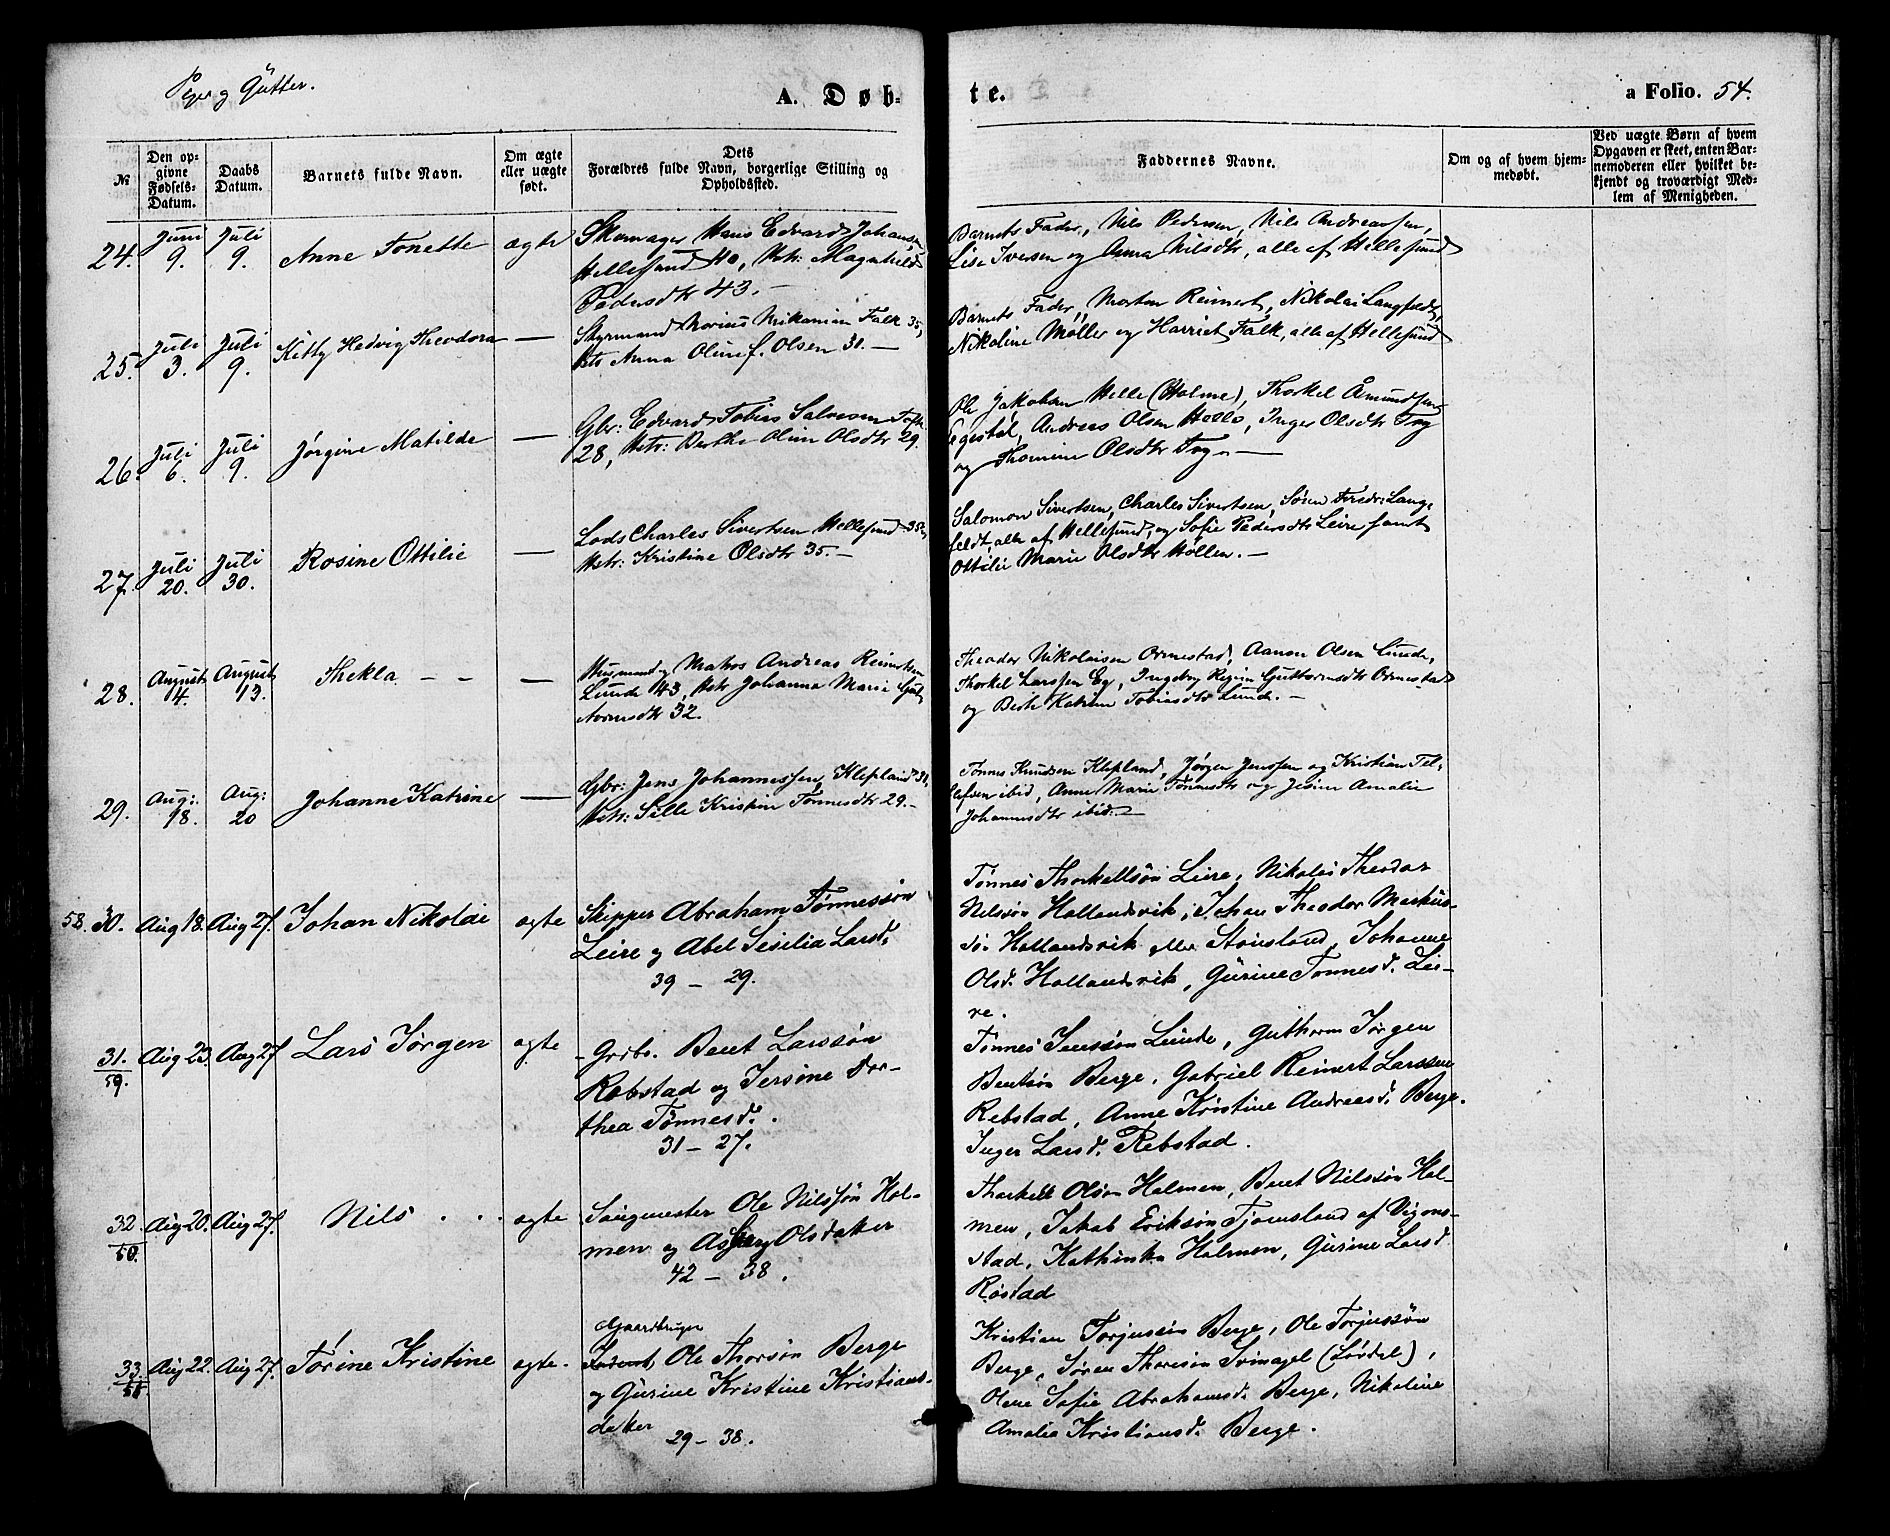 Piger og Gutter.
A. Døb-
te.
a Folio. 54.
№
Den op-
givne
Fødsels-
Datum.
Daabs
Datum.
Barnets fulde Navn.
Om ægte
eller uægte
født.
Dets
Forældres fulde Navn, borgerlige Stilling og
Opholdssted.
Faddernes Navne.
Om og af hvem hjem-
medøbt.
Ved uægte Børn af hvem
Opgaven er skeet, enten Bar-
nemoderen eller hvilket be-
kjendt og troværdigt Med-
lem af Menigheden.
24. Juni 9. Juli 9. Anne Tonette ægte
Skomager Hans Edvard Johansen
Hellesund 40, Hstr: Magnhild
Pedersdtr 43. —
Barnets Fader, Nils Pedersen, Nils Andreassen,
Lise Iversen og Anna Nilsdtr, alle af Hellesund
25. Juli 3. Juli 9. Kitty Hedvig Theodora —
Styrmand Falk 35,
Hstr Anna Oline f. Olsen 31. —
Barnets Fader, Morten Reinert, Nikolai Langfeldt,
Nikoline Møller og Harriet Falk, alle af Hellesund
26. Juli 6. Juli 9. Jørgine Matilde —
Gbr: Edvard Tobias Salvesen
28, Hstr: Berthe Oline Olsdtr 29.
Ole Jakobsen Helle (Holme), Thorkel Åmundsen
Egestøl, Andreas Olsen Helle, Inger Olsdtr Try
og Thomine Olsdtr Try. —
27. Juli 20. Juli 30. Rosine Ottilie —
Lods Charles Sivertsen Hellesund 35,
Hstr: Kristine Olsdtr 35. —
Salomon Sivertsen, Charles Sivertsen, Søren Fredr: Lang-
feldt, alle af Hellesund, og Sofie Pedersdtr Leire samt
Ottilie Marie Olsdtr Høllen. —
28. August 14. August 13. Thekla — — —
Husmand og Matros Andreas Reinertsen
Lunde 43, Hstr Johanna Marie Gut-
tormsdtr 32.
Theodor Nikolaisen Ormestad, Aanon Olsen Lunde,
Thorkel Larssen Eg, Ingeborg Regine Guttormsdtr Ormestad
og Berte Katrine Tobiasdtr Lunde. —
29. Aug: 18. Aug: 20 Johanne Katrine —
Gbr: Jens Johannessen Klepland 31,
Hstr: Sille Kristine Tønnesdtr 29. —
Tønnes Knudsen Klepland, Jørgen Jenssen og Kristian Tel-
lefsen ibid, Anne Marie Tønnesdtr og Jesine Amalie
Johannesdtr ibid. —
58. 30. Aug 18. Aug 27. Johan Nikolai ægte
Skipper Abraham Tønnessøn
Leire og Abel Sesilia Larsd.
39 — 29.
Tønnes Thorkellsøn Leire, Nikolai Theodor
Nilssøn Hallandsvik, Johan Theodor Markus-
sø. Hallandsvik eller Stousland, Johanne
Olsd. Hallandsvik, Gurine Tønnesd. Lei-
re.
31. 59. Aug 23. Aug 27. Lars Jørgen ægte
Grbr. Bent Larssøn
Rebstad og Jersine Dor-
thea Tønnesd.
31 — 27.
Tønnes Jenssøn Lunde, Guthorm Jørgen
Bentsøn Berge, Gabriel Reinert Larssen
Rebstad, Anne Kristine Andreasd. Berge.
Inger Larsd. Rebstad.
32. Aug 20. Aug 27. Nils . . ægte
Saugmester Ole Nilssøn Hol-
men og Olsdatter
42 — 38.
Thorkell Olsøn Holmen, Bent Nilssøn Hol-
men, Jakob Eriksøn Tjomsland af Vigmo-
stad, Kathinka Holmen, Gurine Larsd
Røstad
33. Aug 22. Aug 27. Tørine Kristine ægte.
Gaardbruger
Ole Thorsøn Berge
og Gurine Kristine Kristians-
datter
29 — 38.
Kristian Torjussøn Berge, Ole Torjussøn
Berge, Søren Thoresøn Svinagel (Søvdel),
Olene Sofie Abrahamsd. Berge, Nikoline
Amalia Kristiansd. Berge.